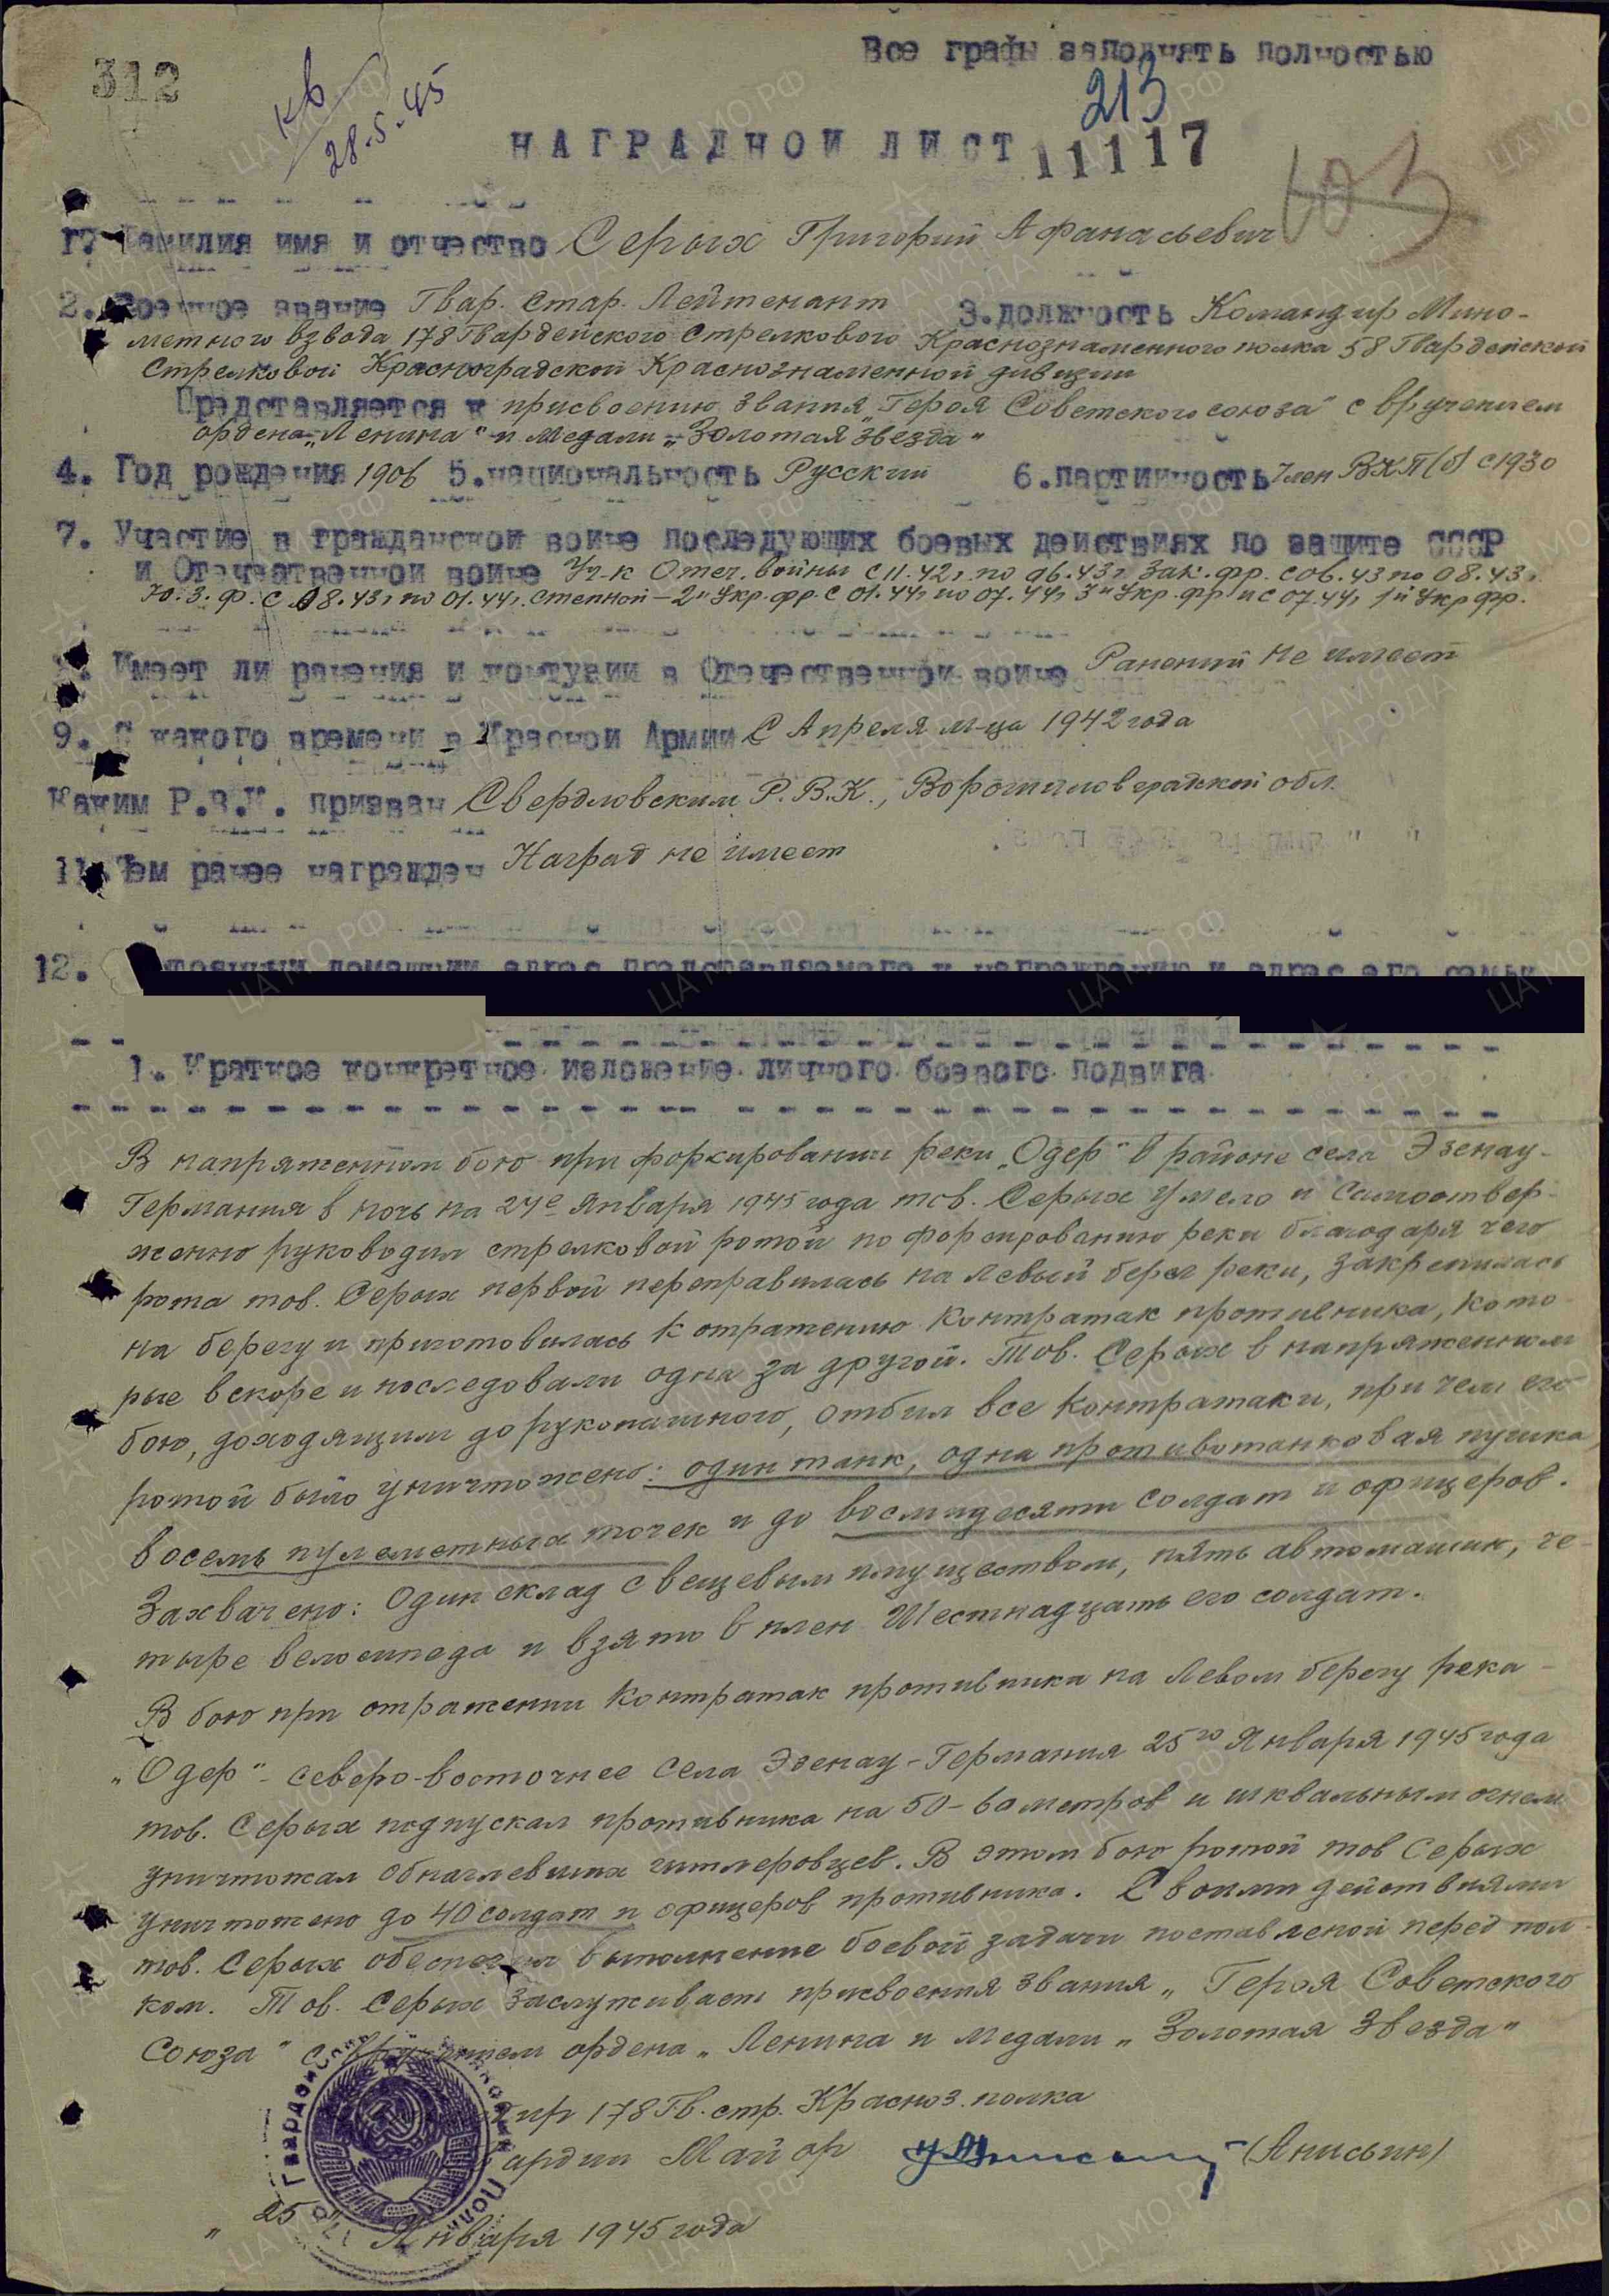 Все графы заполнять полностью
312
кв
28.5.45
213
НАГРАДНОЙ ЛИСТ 11117
1. Фамилия имя и отчество Серых Григорий Афанасьевич
2. Военное звание Гвар. Стар. Лейтенант 3. должность Командир Мино-
метного взвода 178 Гвардейского Стрелкового Краснознаменного полка 58 Гвардейской
Стрелковой Красноградской Краснознаменной дивизии
Представляется к присвоению звания „Героя Советского союза" с вручением
ордена „Ленина" и Медали „Золотая звезда"
4. Год рождения 1906 5. национальность Русский 6. партийность Член ВКП(б) с 1930
7. Участие в гражданской войне последующих боевых действиях по защите СССР
и Отечественной войне Уч-к Отеч. войны с 11.42г. по 06.43г. Зак. фр. с 06.43 по 08.43г.
Ю.З.Ф. с 08.43г. по 01.44г. Степной – 2й Укр. фр. с 01.44г. по 07.44г. 3й Укр. фр. и с 07.44г. 1й Укр фр.
Имеет ли ранения и контузии в Отечественной войне Ранений не имеет
9. С какого времени в Красной Армии С Апреля м-ца 1942 года
Каким Р.В.К. призван Свердловским Р.В.К., Ворошиловградской обл.
11. Чем ранее награжден Наград не имеет
12. домашний адрес представляемого к награждению и адрес его семьи
1. Краткое конкретное изложение личного боевого подвига
В напряженном бою при форсировании реки „Одер" в районе села Эзенау-
Германия в ночь на 24е Января 1945 года тов. Серых умело и самоотвер-
женно руководил стрелковой ротой по форсированию реки благодаря чего
рота тов. Серых первой переправилась на левый берег реки, закрепилась
на берегу и приготовилась к отражению контратак противника, кото-
рые вскоре и последовали одна за другой. Тов. Серых в напряженным
бою, доходящим до рукопашного, отбил все контратаки, при чем его
ротой было уничтожено: один танк, одна противотанковая пушка,
восемь пулеметных точек и до восмидесяти солдат и офицеров.
Захвачено: Один склад с вещевым имуществом, пять автомашин, че-
тыре велосипеда и взято в плен Шестнадцать его солдат.
В бою при отражении контратак противника на левом берегу река-
„Одер" - северо-восточнее села Эзенау-Германия 25го Января 1945 года
тов. Серых подпускал противника на 50-60 метров и шквальным огнем
уничтожал обнаглевших гитлеровцев. В этом бою ротой тов Серых
уничтожено до 40 солдат и офицеров противника. Своими действиями
тов. Серых обеспечил выполнение боевой задачи поставленой перед пол-
ком. Тов. Серых заслуживает присвоения звания „Героя Советского
Союза" с вручением ордена „Ленина и медали „Золотая Звезда"
178 Гв. стр. Красноз. полка
Гвардии Майор (Анисьин)
„25" Января 1945 года